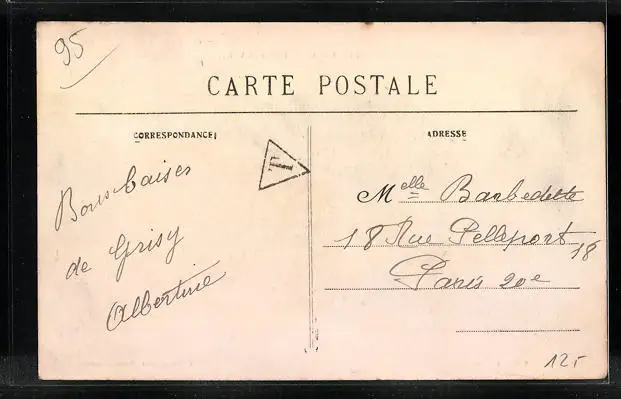 95
CARTE POSTALE
CORRESPONDANCE
ADRESSE
T
Bons baises
de Grisy
Albertine
Melle Barbedette
18 Rue Pelleport 18
Paris 20e
125